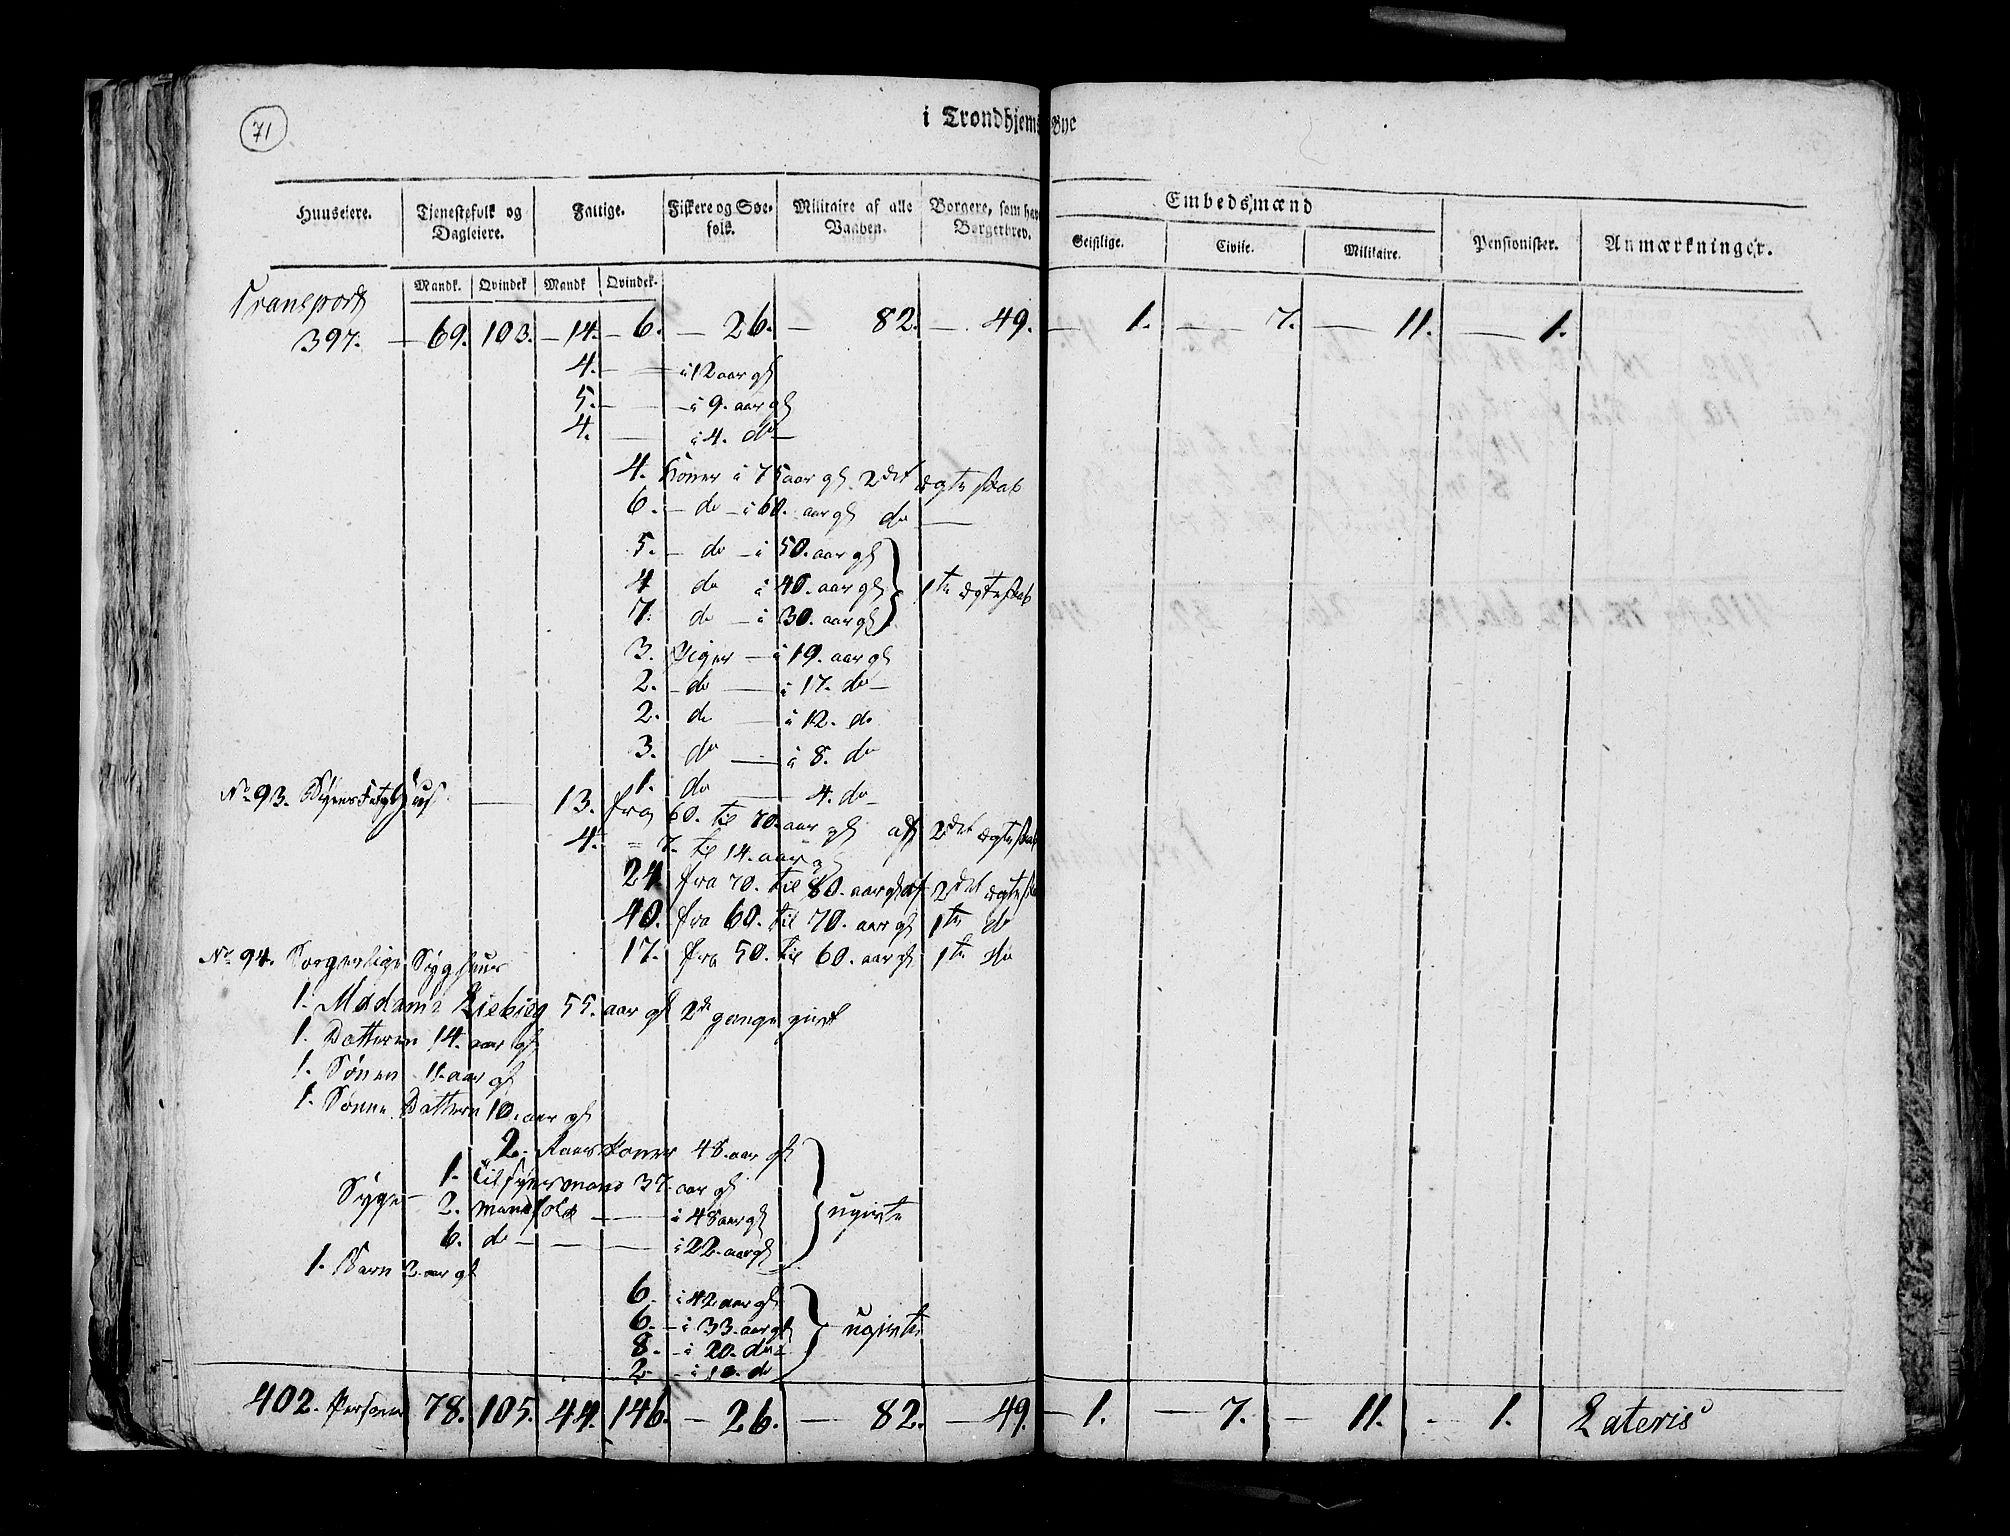 71
i Trondhjems Bye
Huuseiere. Tjenestefolk og Dagleiere. Fattige. Fiskere og Søefolk. Militaire af alle Vaaben. Borgere, som have Borgerbrev. Embedsmænd Pensionister. Anmærkninger.
Geistlige. Civile. Militaire.
Mandk. Qvindek Mandk Qvindek.
Transport
397. — 69. 103. — 14. — 6. — 26. — 82. — 49. — 1. — 7. — 11. — 1.
4. — — à 12 aar gl
5. — — à 9. aar gl
4. — à 4. do —
4. Koner à 75 aar gl. 2det ægteskab
6. — do — à 60. aar gl do —
5. — do — à 50. aar gl
4 do à 40. aar gl 1te ægteskab
7. do — à 30. aar gl
3. Piger — à 19. aar gl
2. — do — à 17. do —
2. do — à 12. do
3. do — à 8. do
1. do — 4. do —
No 93. Byens Fatighuus — 13. fra 60. til 70. aar gl af 2det ægteskab
4. = 7. til 14. aar gl
24. fra 70. til 80. aar gl af 2det ægteskab
40. fra 60. til 70. aar gl 1te do
No 94. Borgerlige Syghuus 17. fra 50. til 60. aar gl 1te do
1. Madame Liebieg 55. aar gl 2de gange givt
1. Datteren 14. aar gl
1. Sønen 11. aar gl
1. Sønne Dattern 10. aar gl
2. koner 48. aar gl
1. Tilsynsmand 37. aar gl
Syge — 2. mandfolk — à 48 aar gl ugivte
6. do — — à 22. aar gl
1. Barn 2. aar gl
6. — à 42 aar gl
6. — à 33. aar gl ugivte
8. — à 20. do —
2 — à 10. do
402. Personer 78. 105. 44. 146. — 26. — 82. — 49. — 1. — 7. — 11. — 1. Lateris